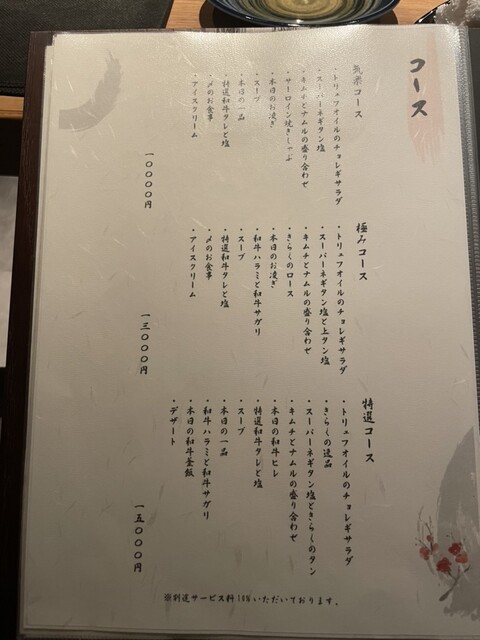 コース
気楽コース
・トリュフオイルのチョレギサラダ
・スーパーネギタン塩
・キムチとナムルの盛り合わせ
・サーロイン焼きしゃぶ
・本日のお凌ぎ
・スープ
・本日の一品
・特選和牛タレと塩
・〆のお食事
・アイスクリーム
一〇〇〇〇円
極みコース
・トリュフオイルのチョレギサラダ
・スーパーネギタン塩と上タン塩
・キムチとナムルの盛り合わせ
・きらくのロース
・本日のお凌ぎ
・和牛ハラミと和牛サガリ
・スープ
・特選和牛タレと塩
・〆のお食事
・アイスクリーム
一三〇〇〇円
特選コース
・トリュフオイルのチョレギサラダ
・きらくの逸品
・スーパーネギタン塩ときらくのタン
・キムチとナムルの盛り合わせ
・本日の和牛ヒレ
・特選和牛タレと塩
・スープ
・本日の一品
・和牛ハラミと和牛サガリ
・本日の和牛釜飯
・デザート
一五〇〇〇円
※別途サービス料10%いただいております。